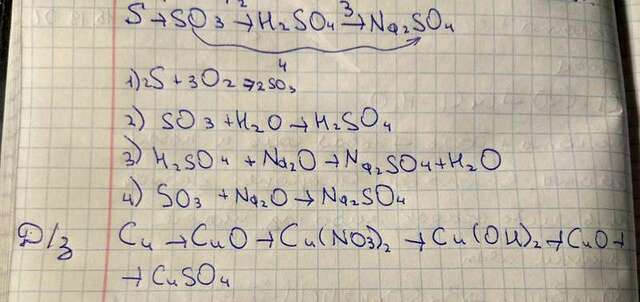 S → SO3 2→ H2SO4 3→ Na2SO4
4
1) 2S + 3O2 → 2SO3
2) SO3 + H2O → H2SO4
3) H2SO4 + Na2O → Na2SO4 + H2O
4) SO3 + Na2O → Na2SO4
Д/з Cu → CuO → Cu(NO3)2 → Cu(OH)2 → CuO →
→ CuSO4